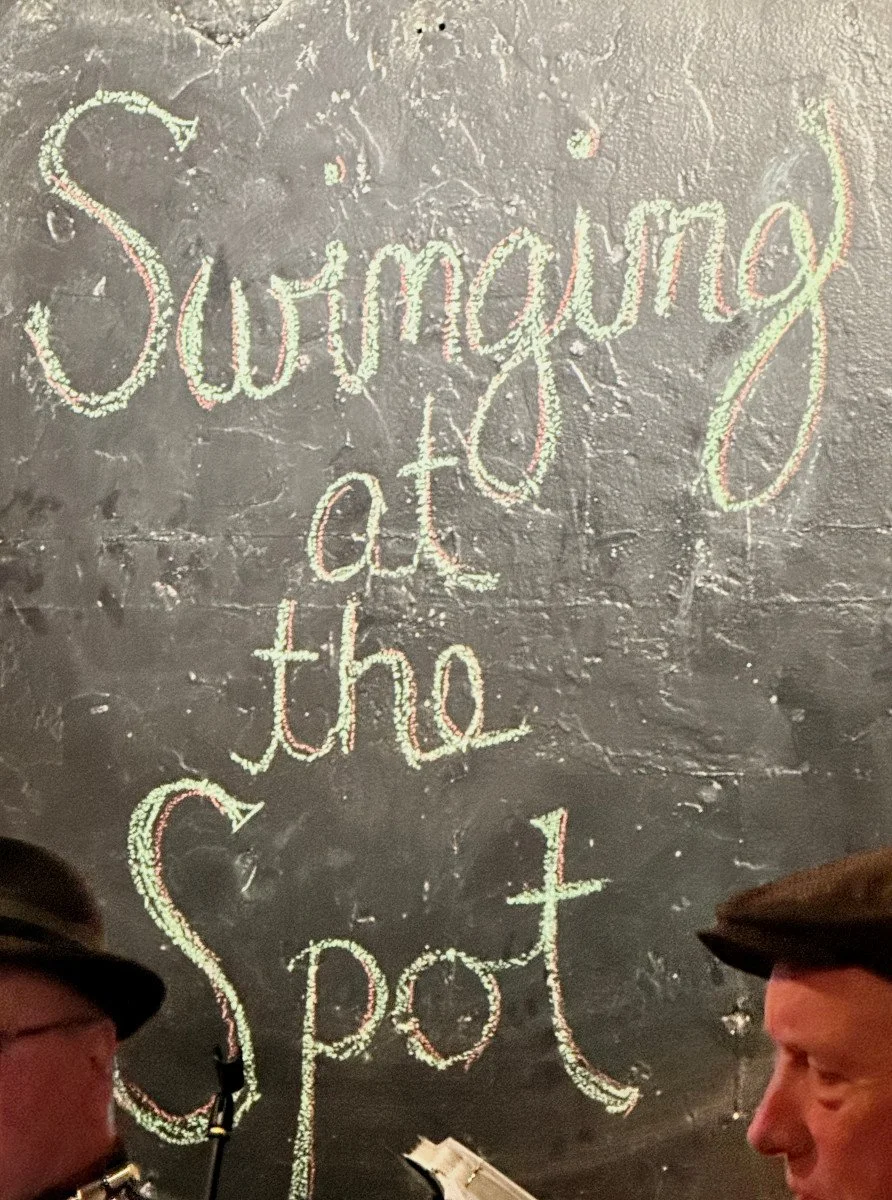 Swinging
at
the
Spot